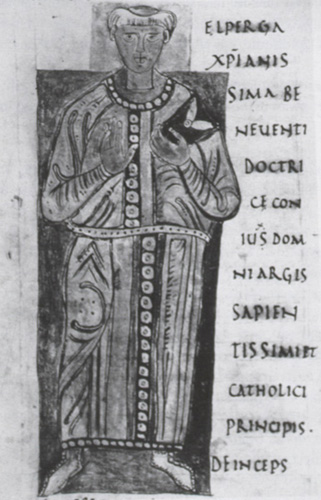 ELPERGA
XP̄IANIS
SIMA BE
NEUENTI
DOCTRI
CE CON
IUS̄ DOM
NI ARGIS
SAPIEN
TISSIMI ET
CATHOLICI
PRINCIPIS.
DEINCEPS